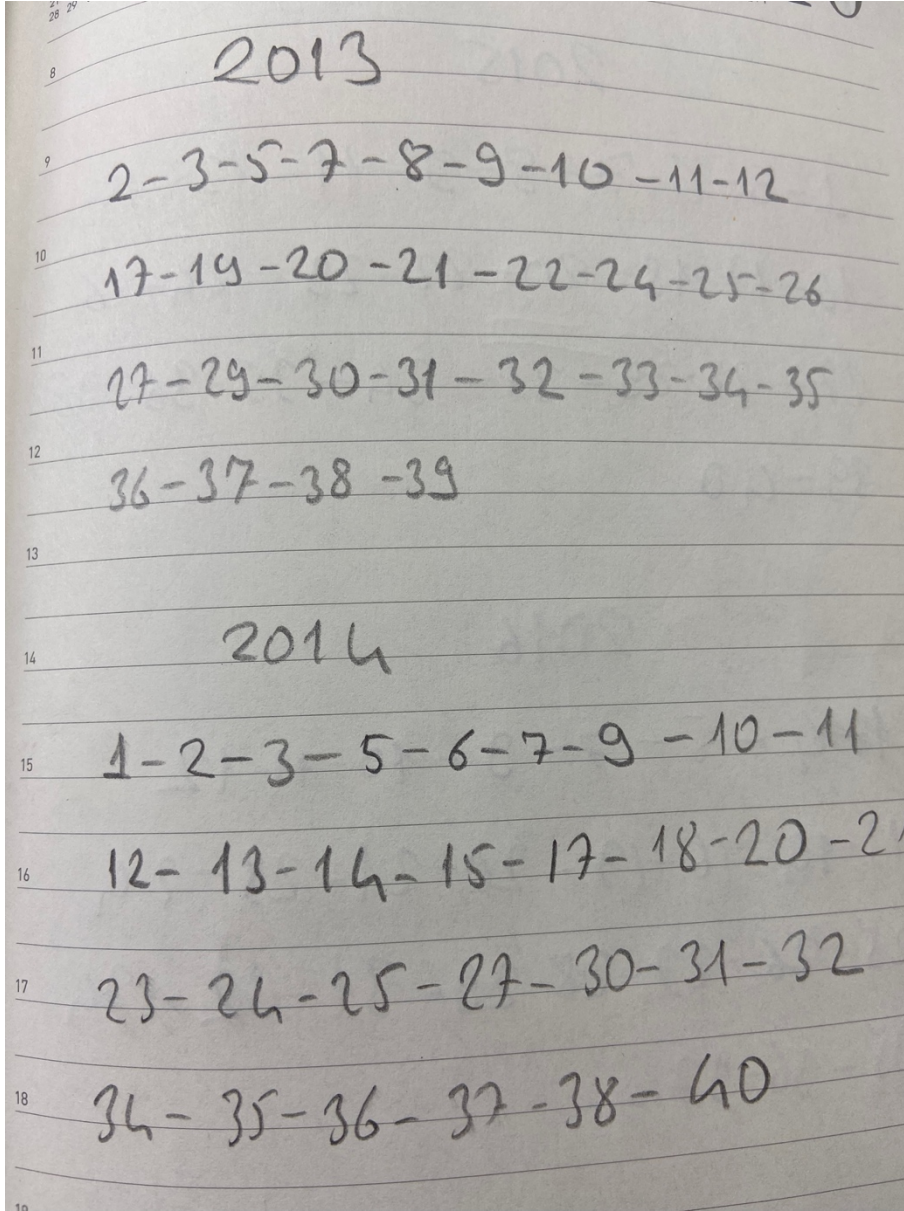 28 29
8
2013
9
2-3-5-7-8-9-10-11-12
10
17-19-20-21-22-24-25-26
11
27-29-30-31-32-33-34-35
12
36-37-38-39
13
14
2014
15
1-2-3-5-6-7-9-10-11
16
12-13-14-15-17-18-20-2
17
23-24-25-27-30-31-32
18
34-35-36-37-38-40